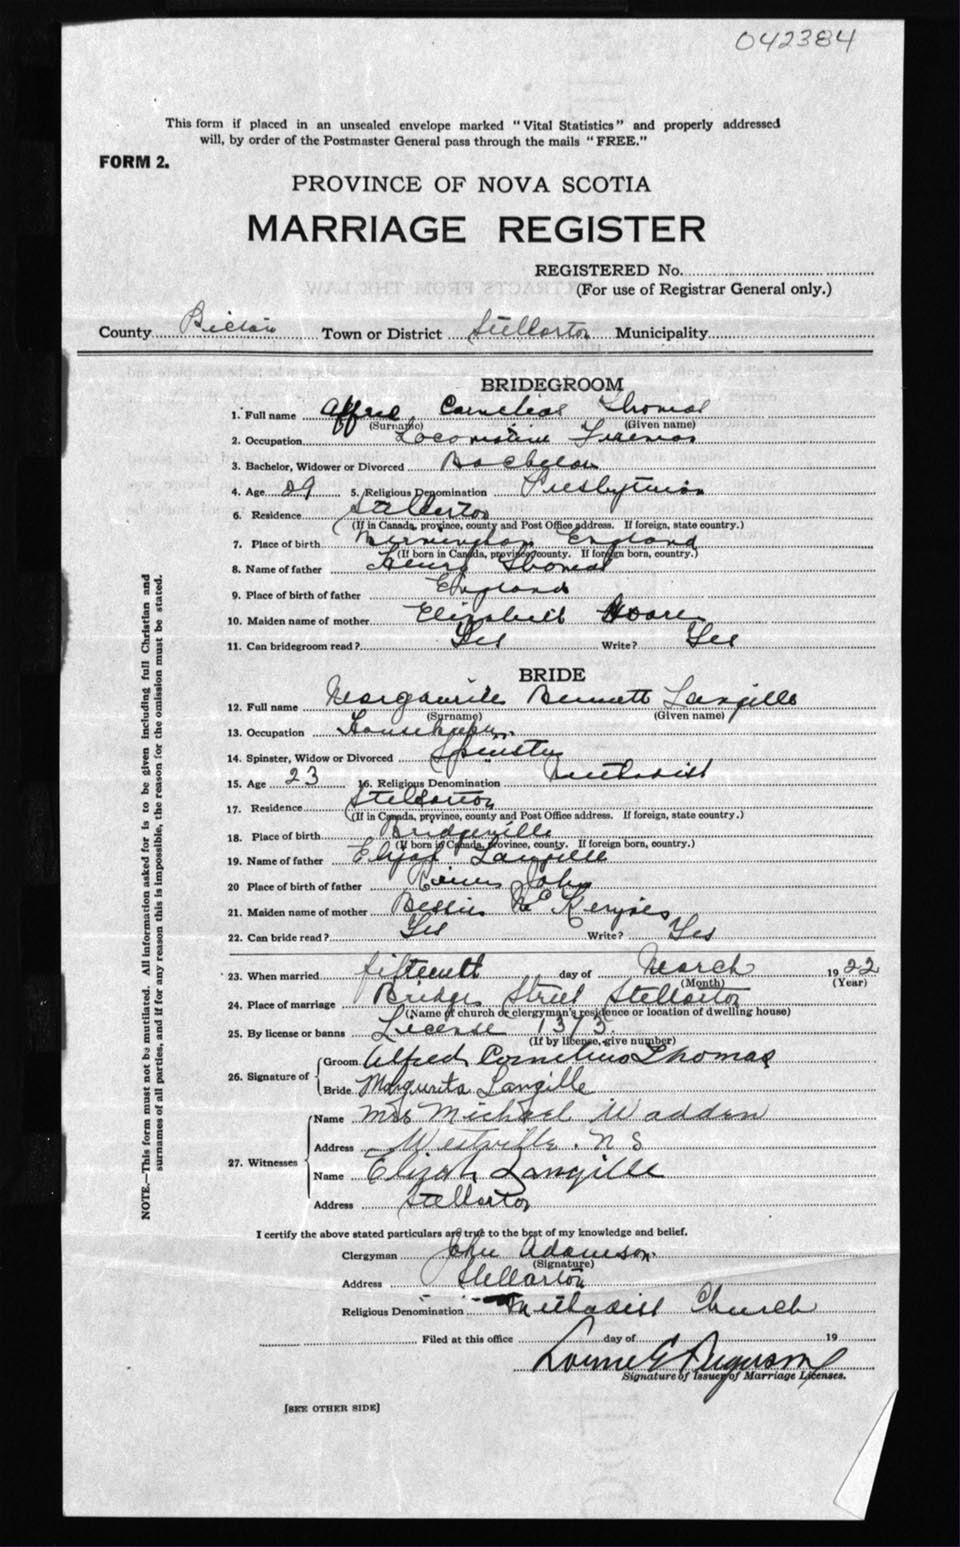 042384
This form if placed in an unsealed envelope marked "Vital Statistics" and properly addressed
will, by order of the Postmaster General pass through the mails "FREE."
FORM 2.
PROVINCE OF NOVA SCOTIA
MARRIAGE REGISTER
REGISTERED No.
(For use of Registrar General only.)
County Pictou Town or District Stellarton Municipality
BRIDEGROOM
1. Full name Alfred Cornelius Thomas
(Surname) (Given name)
2. Occupation Locomotive Fireman
3. Bachelor, Widower or Divorced Bachelor
4. Age 29 5. Religious Denomination Presbyterian
6. Residence Stellarton
(If in Canada, province, county and Post Office address. If foreign, state country.)
7. Place of birth Birmingham England
(If born in Canada, province, county. If foreign born, country.)
8. Name of father Henry Thomas
9. Place of birth of father England
10. Maiden name of mother Elizabeth Hoare
11. Can bridegroom read? Yes Write? Yes
BRIDE
12. Full name Marguerite Bennett Langille
(Surname) (Given name)
13. Occupation Housekeeper
14. Spinster, Widow or Divorced Spinster
15. Age 23 16. Religious Denomination Methodist
17. Residence Stellarton
(If in Canada, province, county and Post Office address. If foreign, state country.)
18. Place of birth Bridgeville
(If born in Canada, province, county. If foreign born, country.)
19. Name of father Elijah Langille
20 Place of birth of father River John
21. Maiden name of mother Bessie
22. Can bride read? Yes Write? Yes
23. When married fifteenth day of March 1922
(Month) (Year)
24. Place of marriage Bridge Street Stellarton
(Name of church or clergyman's residence or location of dwelling house)
25. By license or banns License 1313
(If by license, give number)
26. Signature of Groom Alfred Cornelius Thomas
Bride Margurita Langille
27. Witnesses Name Mrs Michael Wadden
Address Westville. N S
Name Elijah Langille
Address Stellarton
I certify the above stated particulars are true to the best of my knowledge and belief.
Clergyman John Adamson
(Signature)
Address Stellarton
Religious Denomination Methodist Church
Filed at this office day of 19
Lorne E Ferguson
Signature of Issuer of Marriage Licenses.
[SEE OTHER SIDE]
NOTE.—This form must not be mutilated. All information asked for is to be given including full Christian and
surnames of all parties, and if for any reason this is impossible, the reason for the omission must be stated.